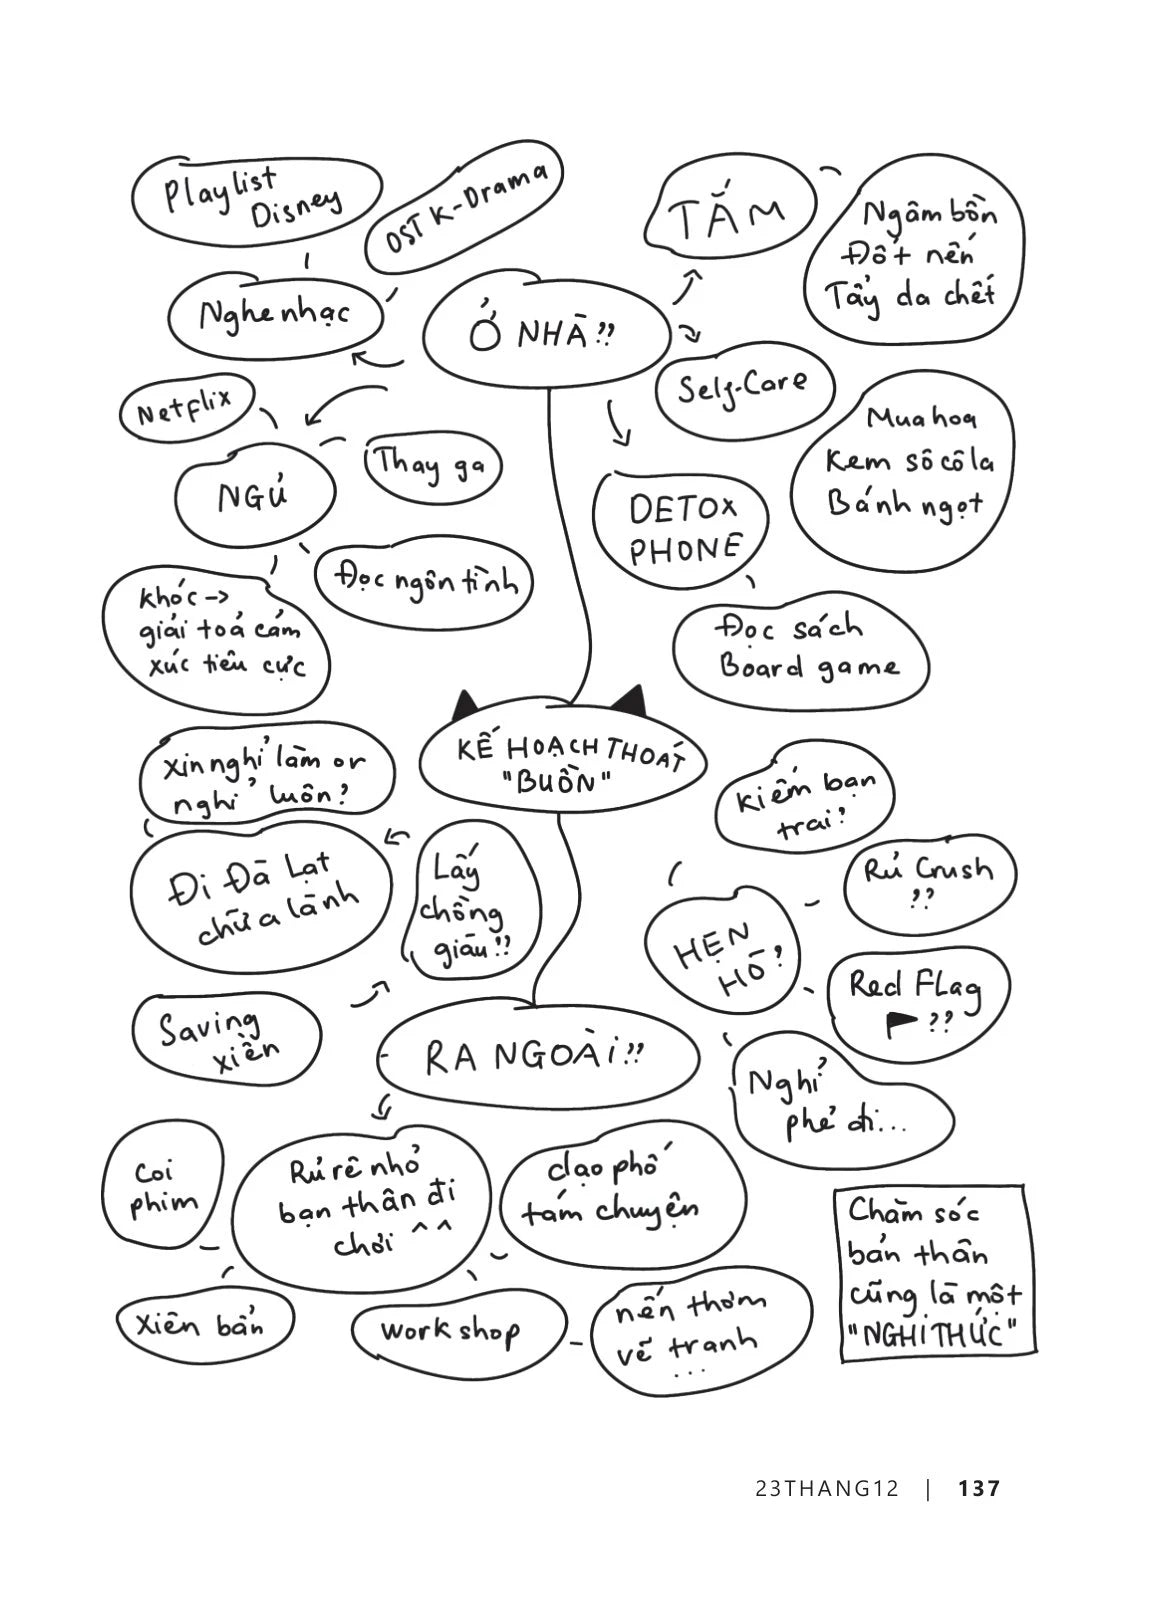 Playlist
Disney
OST K-Drama
Nghe nhạc
Ở NHÀ??
TẮM
Ngâm bồn
Đốt nến
Tẩy da chết
Self-Care
Mua hoa
Kem sô cô la
Bánh ngọt
Netflix
NGỦ
Thay ga
Đọc ngôn tình
Khóc ->
giải toả cảm
xúc tiêu cực
DETOX
PHONE
Đọc sách
Board game
KẾ HOẠCH THOÁT
"BUỒN"
Xin nghỉ làm or
nghỉ luôn?
Đi Đà Lạt
chữa lành
Lấy
chồng
giàu??
Saving
xiên
RA NGOÀI??
Kiếm bạn
trai?
Rủ Crush
??
HẸN
HÒ?
Red Flag
??
Nghỉ
phẻ đi...
Coi
phim
Rủ rê nhỏ
bạn thân đi
chơi ^^
dạo phố
tám chuyện
Xiên bẩn
Workshop
nến thơm
vẽ tranh
...
Chăm sóc
bản thân
cũng là một
"NGHI THỨC"
23THANG12 | 137